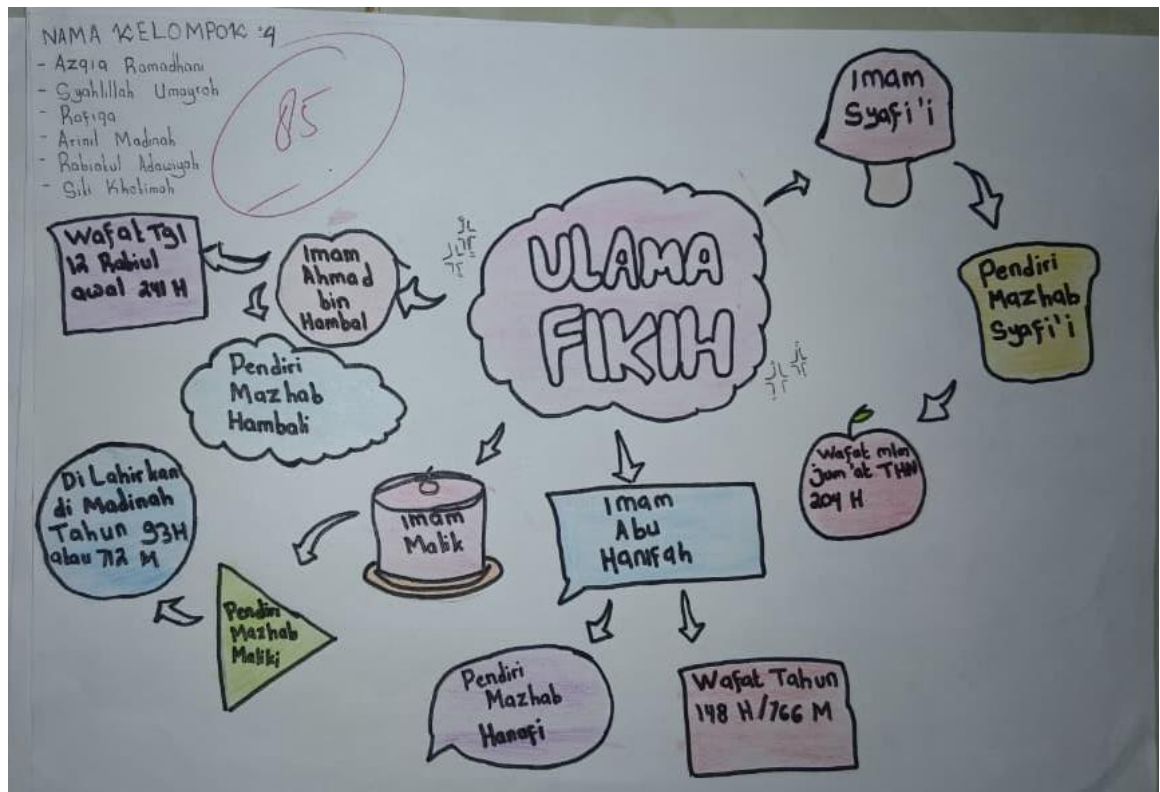 NAMA KELOMPOK :4
- Azqia Ramadhani
- Syahlillah Umayroh
- Rafiqa
- Arinil Madinah
- Rabiatul Adawiyah
- Siti Khotimah
85
ULAMA
FIKIH
Imam
Syafi'i
Pendiri
Mazhab
Syafi'i
Wafat mlm
jam'at THN
204 H
Imam
Ahmad
bin
Hambal
Wafat Tgl
12 Rabiul
awal 241 H
Pendiri
Mazhab
Hambali
Imam
Malik
Pendiri
Mazhab
Maliki
Di Lahirkan
di Madinah
Tahun 93H
atau 712 M
Imam
Abu
Hanifah
Pendiri
Mazhab
Hanafi
Wafat Tahun
148 H/766 M